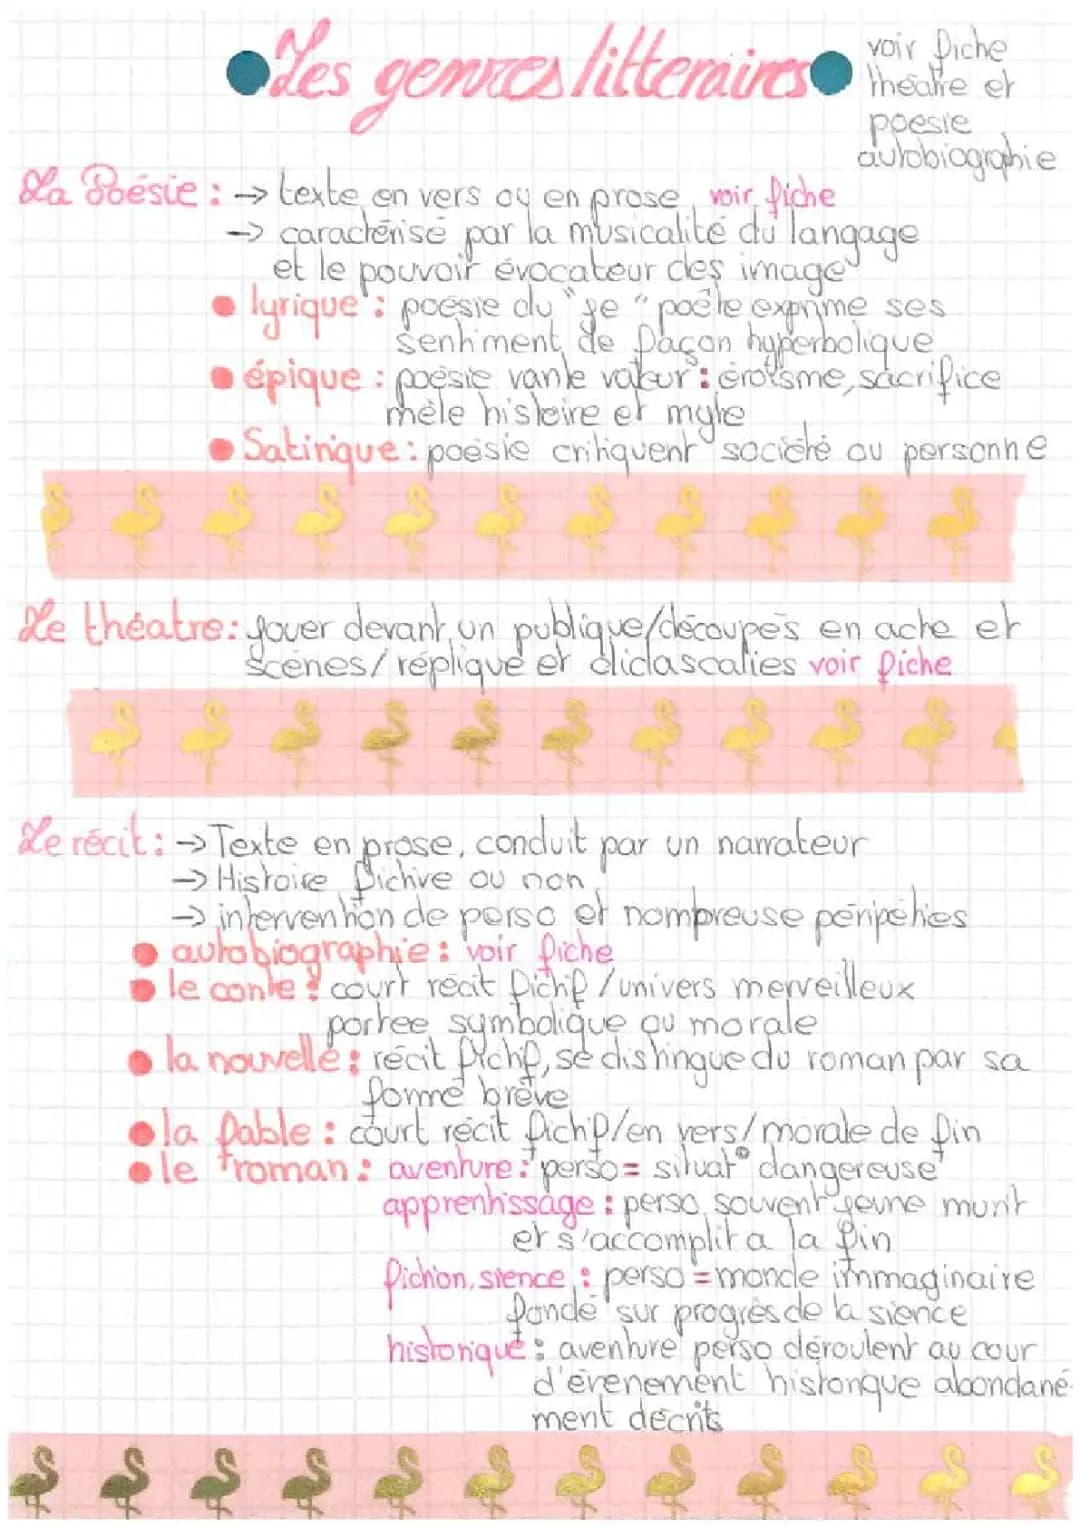 Les genres litteraires
voir fiche
théatre et
poesie
autobiographie
La Poésie : → texte en vers ou en prose voir fiche
→ caractérisé par la musicalité du langage
et le pouvoir évocateur des image
lyrique : poésie du "je" poète exprime ses
sentiment de façon hyperbolique
épique : poésie vante valeur : éroïsme, sacrifice
mèle histoire et myte
Satirique : poésie critiquent société ou personne
Le théatre : jouer devant un publique/découpés en acte et
scènes/ réplique et didascalies voir fiche
Le récit : → Texte en prose, conduit par un narrateur
→ Histoire fictive ou non
→ intervention de perso et nombreuse péripéties
autobiographie : voir fiche
le conte : court récit fictif / univers merveilleux
portee symbolique ou morale
la nouvelle : récit fictif, se distingue du roman par sa
forme brève
la fable : court récit fictif/en vers/morale de fin
le roman : aventure : perso = situat° dangereuse
apprentissage : perso souvent jeune murit
et s'accomplit a la fin
fiction, sience : perso = monde immaginaire
fondé sur progrès de la sience
historique : aventure perso déroulent au cour
d'évenement historique abondané-
ment décrits